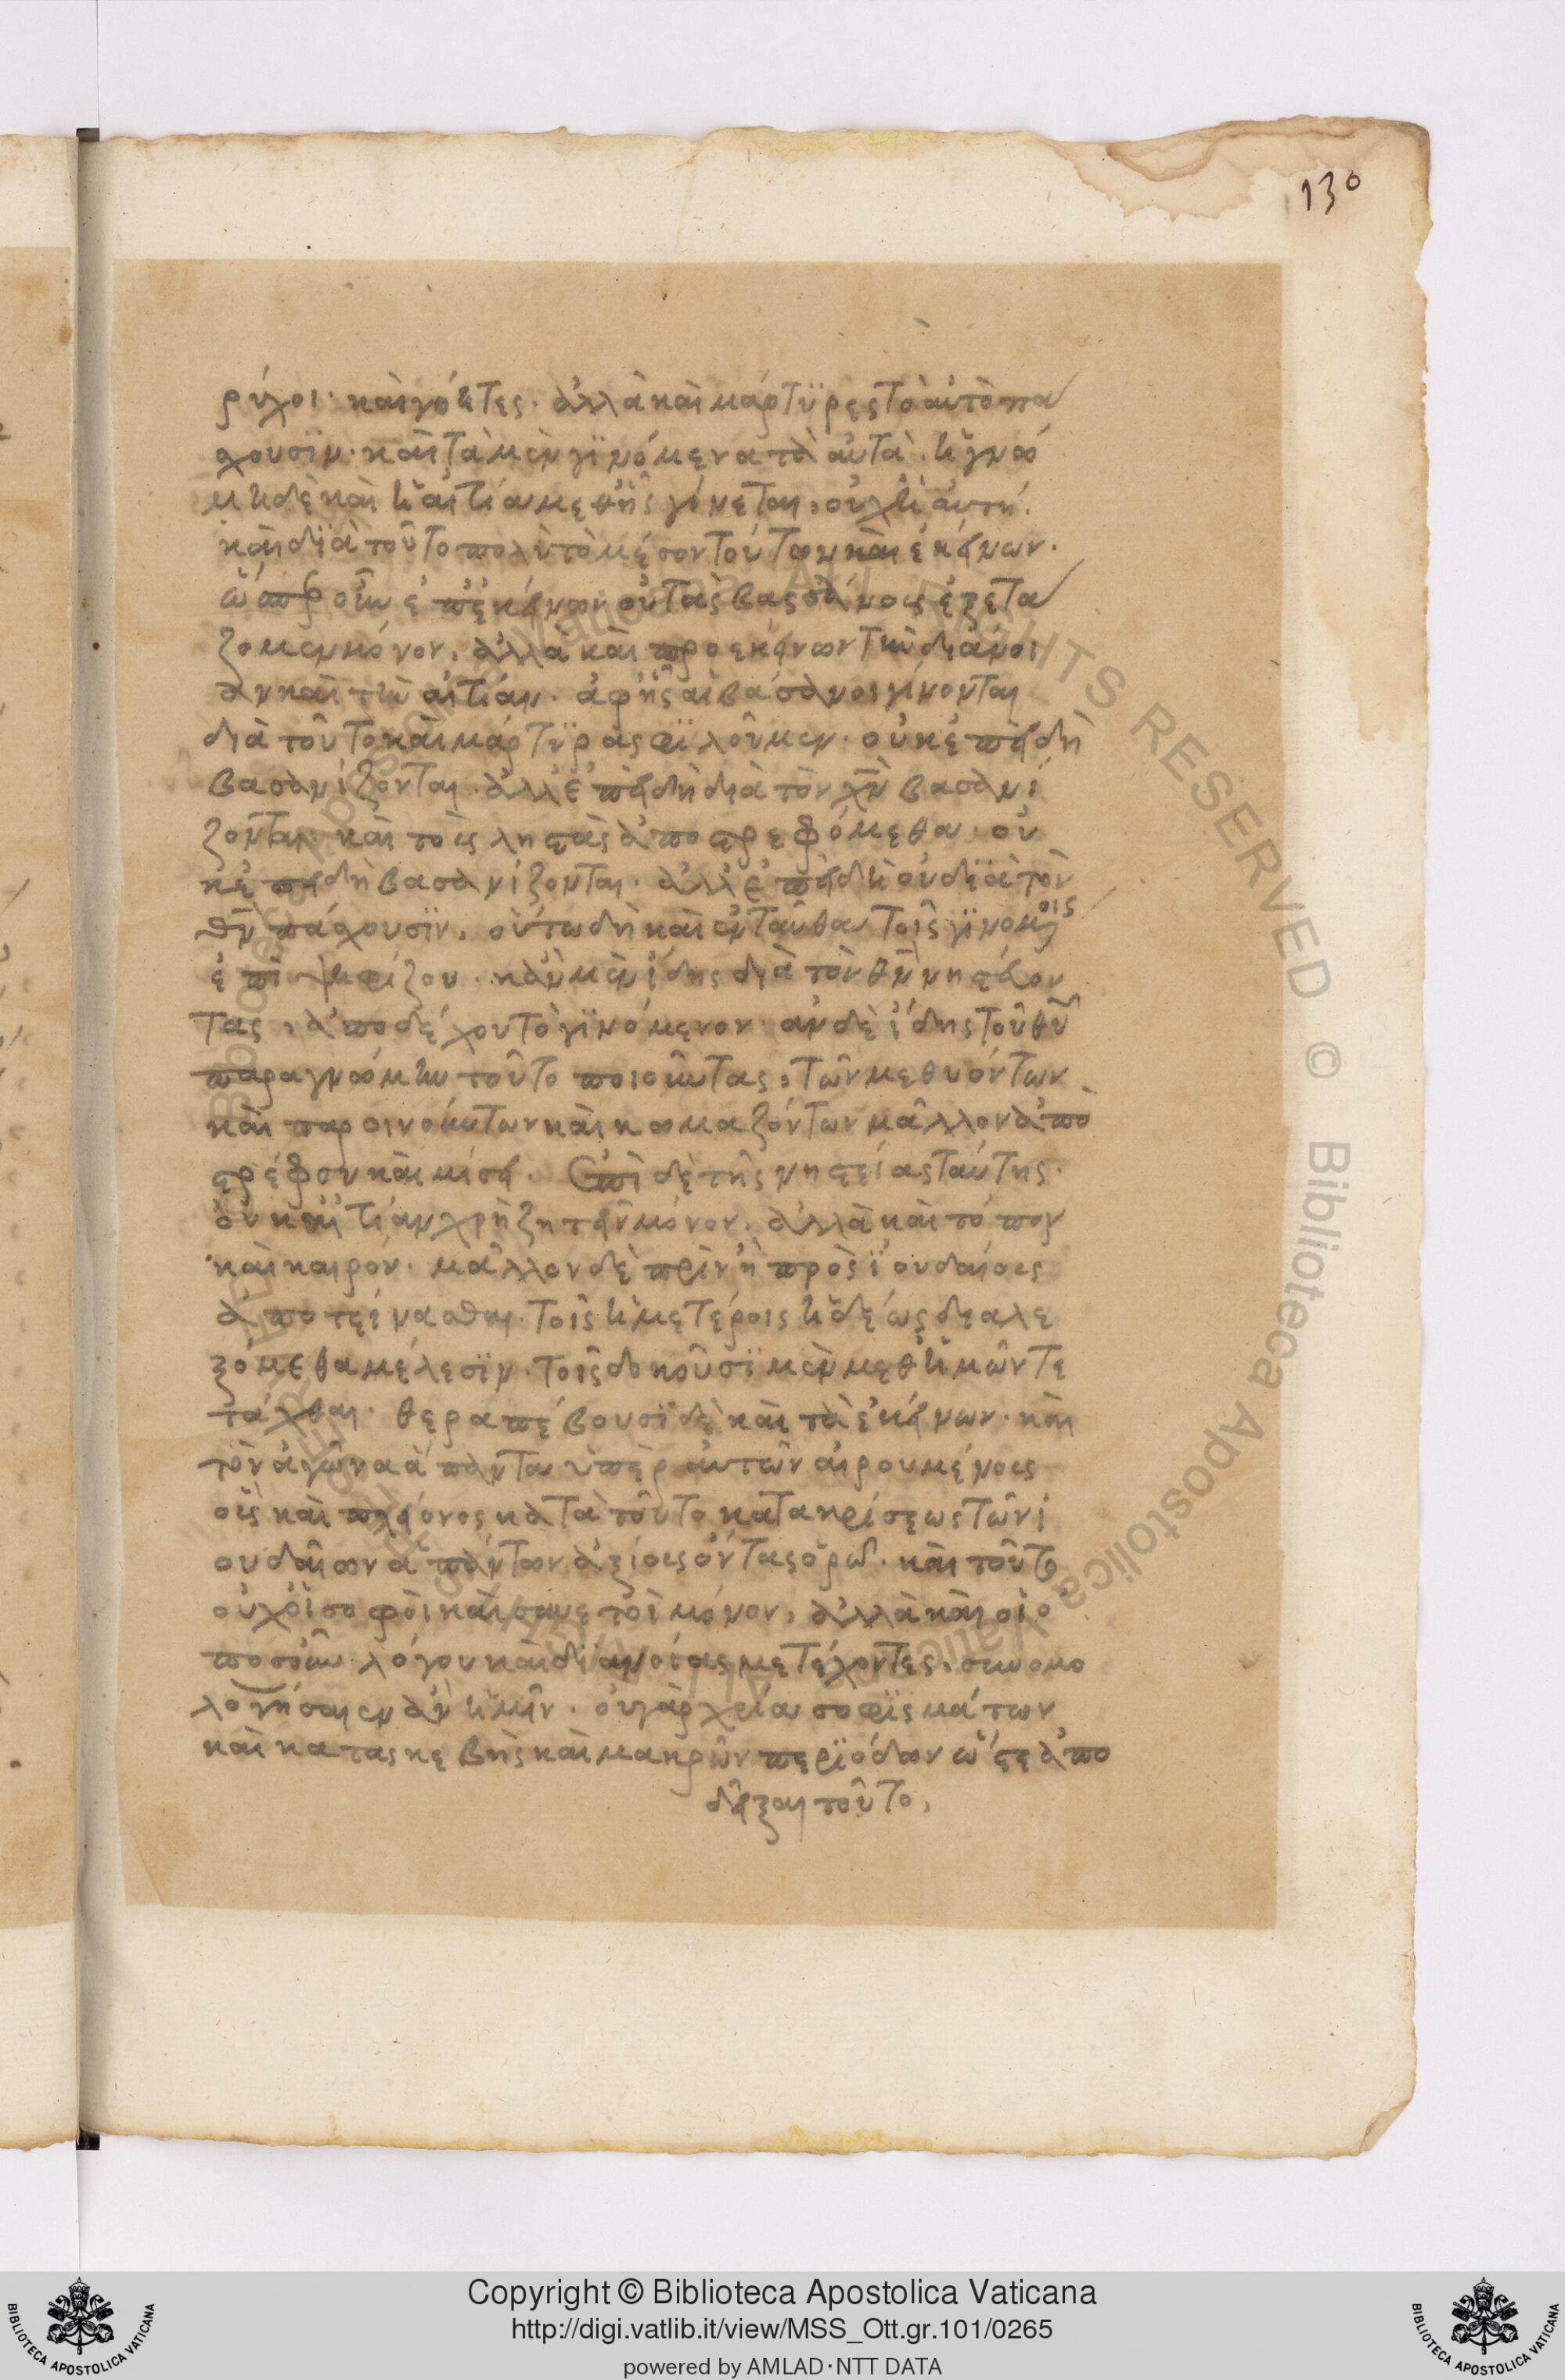 130
ρύχοι· καὶ γόητες· ἀλλὰ καὶ μάρτϋρες τὸ αὐτὸ πά
σχουσϊν· καὶ τὰ μὲν γϊνόμενα τὰ αὐτὰ· ἡ γνώ
μη δὲ καὶ ἡ αἰτία μεθῆς γίνεται, οὐχ ἡ αὐτή·
καὶ δϊὰ τοῦτο πολὺ τὸ μέσον τούτων καὶ ἐκείνων·
ὥσπερ οὖν ἐπ ἐκείνων οὐ τὰς βασάνους ἐξετά
ζομεν μόνον, ἀλλὰ καὶ προ ἐκείνων τὴν διάνοι
αν καὶ τὴν αἰτίαν· ἀφῆς αἱ βάσανοι γίνονται
διὰ τοῦτο καὶ μάρτϋρας φϊλοῦμεν· οὐκ ἐπειδὴ
βασανίζονται· ἀλλ ἐπειδὴ διὰ τὸν χν βασανί
ζονται· καὶ τοὺς ληστὰς ἀποστρεφόμεθα· οὐ
κ ἐπειδὴ βασανίζονται· ἀλλ ἐπειδὴ οὐ δϊὰ τὸν
θν πάσχουσϊν, οὕτω δὴ καὶ ἐνταῦθα τοῖς γϊνομένοις
ἐπιψηφίζου· κἂν μὲν ἴδης διὰ τὸν θν νηστεύον
τας, ἀποδέχου τὸ γϊνόμενον· ἂν δὲ ἴδης τοῦ θυ
παρα γνώμην τοῦτο ποιοῦντας, τῶν μεθυόντων
καὶ παροινούντων καὶ κωμαζόντων μᾶλλον ἀπο
στρέφου καὶ μίσει· Ἐπὶ δὲ τῆς νηστείας ταύτης·
οὐκ αἰτίαν χρὴ ζητεῖν μόνον, ἀλλὰ καὶ τόπον
καὶ καιρόν· μᾶλλον δὲ πρὶν ἢ πρὸς ϊουδαίους
ἀποτείνασθαι· τοῖς ἡμετέροις ἡδέως διαλε
ξόμεθα μέλεσϊν· τοῖς δοκοῦσϊ μὲν μεθ ἡμῶν τε
τάχθαι· θεραπεύουσϊ δὲ καὶ τὰ ἐκείνων· καὶ
τὸν ἀγῶνα ἅπαντα ὑπὲρ αὐτῶν αἰρουμένους
οὓς καὶ πλείονος κατὰ τοῦτο κατακρίσεως τῶν ϊ
ουδαίων ἁπάντων ἀξίους ὄντας ὁρῶ· καὶ τοῦτο
οὐχ οἱ σοφοὶ καὶ συνετοὶ μόνον, ἀλλὰ καὶ οἱ ὁ
ποσοῦν λόγου καὶ διανοίας μετέχοντες, συνομο
λογήσαιεν ἂν ἡμῖν· οὐ γὰρ χρεία σοφϊσμάτων
καὶ κατασκευῆς καὶ μακρῶν περϊόδων ὥστε ἀπο
δεῖξαι τοῦτο,
Copyright © Biblioteca Apostolica Vaticana
http://digi.vatlib.it/view/MSS_Ott.gr.101/0265
powered by AMLAD·NTT DATA